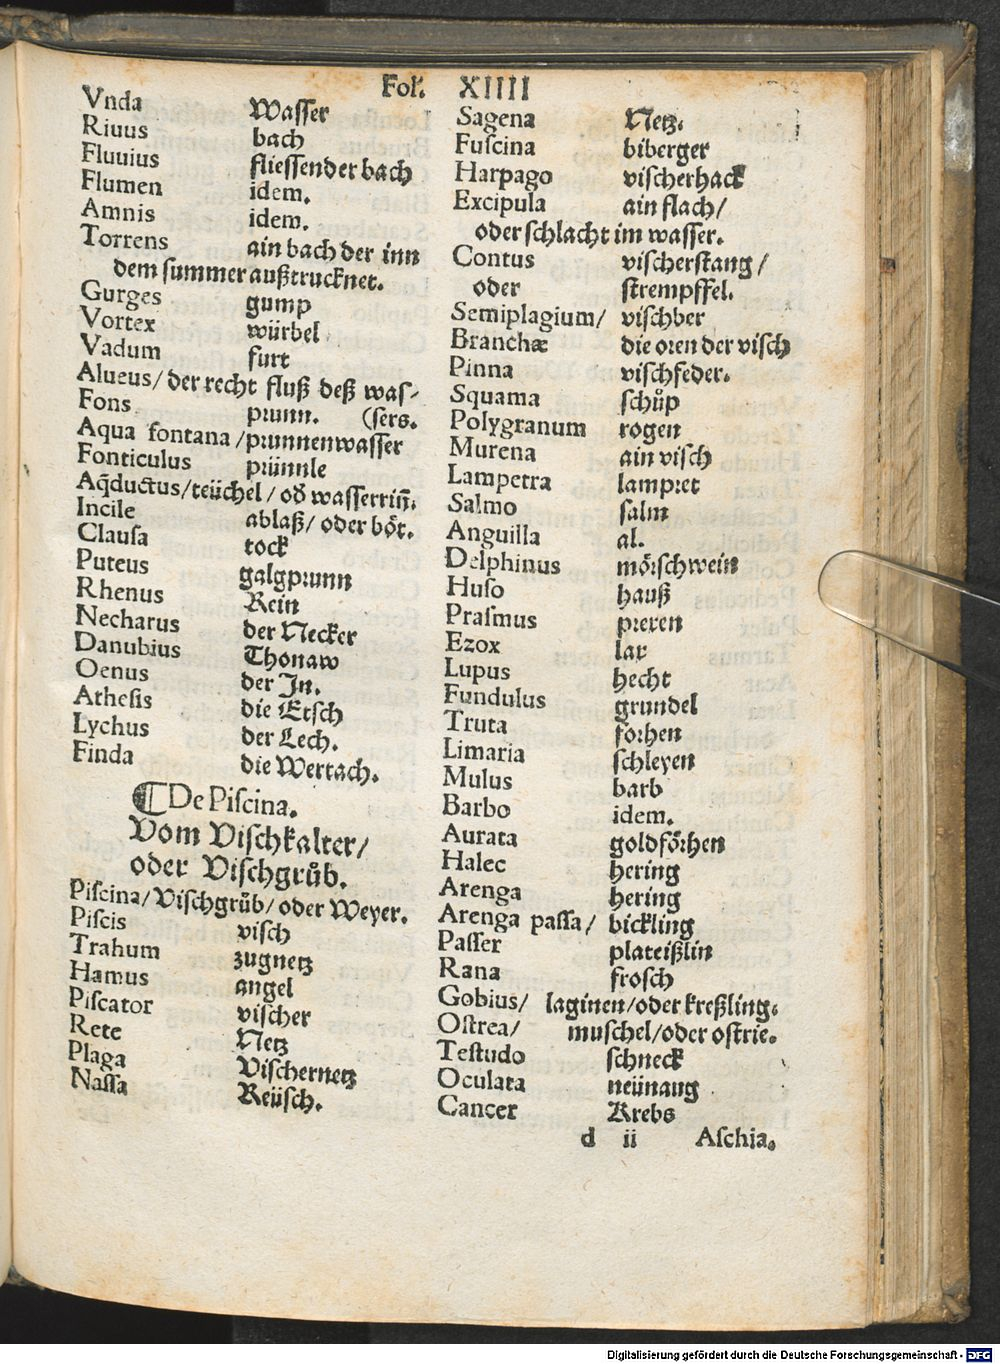 Fol. XIIII
Vnda Wasser
Riuus bach
Fluuius fliessender bach
Flumen idem.
Amnis idem.
Torrens ain bach der inn
dem summer außtrucknet.
Gurges gump
Vortex würbel
Vadum furt
Alueus/ der recht fluß deß was-
Fons prunn. (sers.
Aqua fontana/ prunnenwasser
Fonticulus prünnle
Aq̃ductus/ teüchel/ od̕ wasserriñ.
Incile ablaß/ oder bȯt.
Clausa tock
Puteus galgprunn
Rhenus Rein
Necharus der Necker
Danubius Thonaw
Oenus der In.
Athesis die Etsch
Lychus der Lech.
Finda die Wertach.
¶ De Piscina.
Vom Vischkalter/
oder Vischgrůb.
Piscina/ Vischgrůb/ oder Weyer.
Piscis visch
Trahum zugnetz
Hamus angel
Piscator vischer
Rete Netz
Plaga Vischernetz
Nassa Reüsch.
Sagena Netz.
Fuscina biberger
Harpago vischerhack
Excipula ain flach/
oder schlacht im wasser.
Contus vischerstang/
oder strempffel.
Semiplagium/ vischber
Branchæ die oren der visch
Pinna vischfeder.
Squama schůp
Polygranum rogen
Murena ain visch
Lampetra lampret
Salmo salm
Anguilla al.
Delphinus mörschwein
Huso hauß
Prasmus prexen
Ezox lax
Lupus hecht
Fundulus grundel
Truta forhen
Limaria schleyen
Mulus barb
Barbo idem.
Aurata goldförhen
Halec hering
Arenga hering
Arenga passa/ bickling
Passer plateißlin
Rana frosch
Gobius/ laginen/ oder kreßling.
Ostrea/ muschel/ oder ostrie.
Testudo schneck
Oculata neünaug
Cancer Krebs
d ii Aschia.
Digitalisierung gefördert durch die Deutsche Forschungsgemeinschaft - DFG